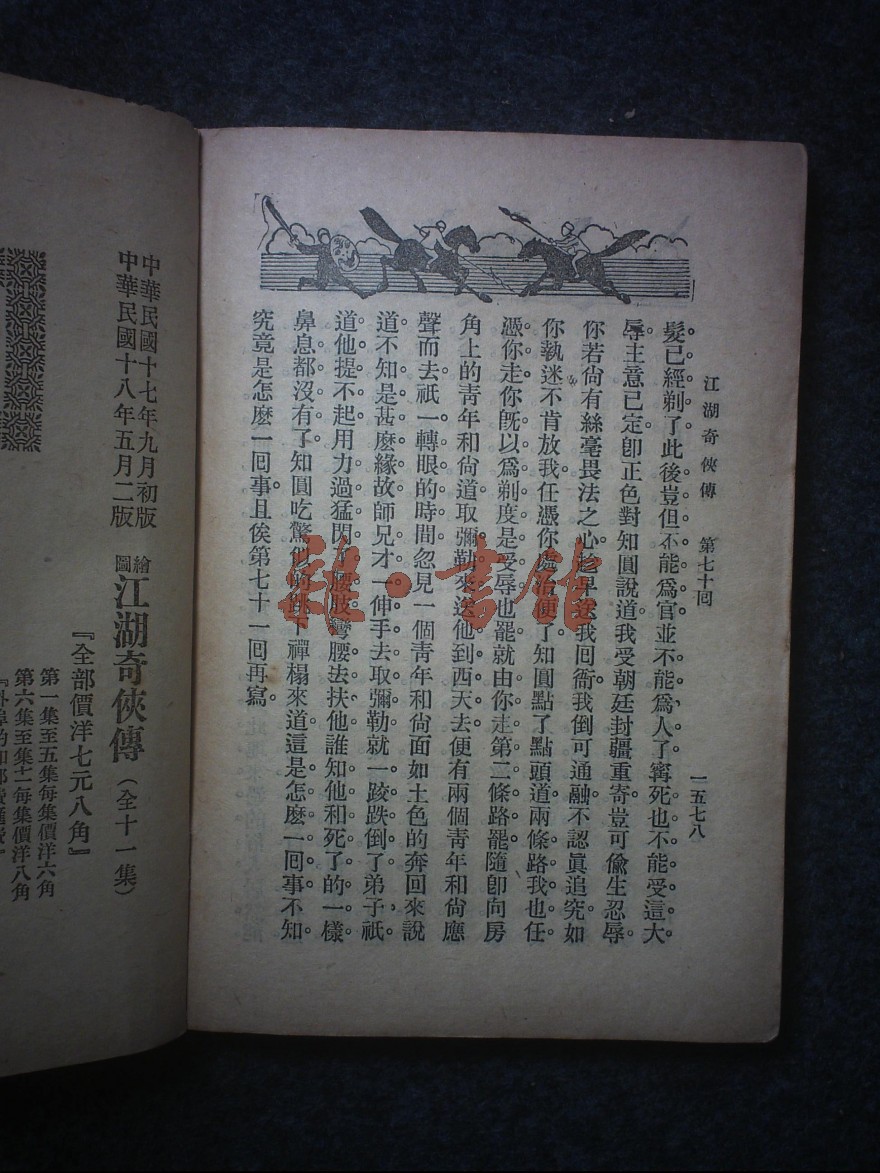 江湖奇俠傳　第七十回　一五七八
髮已經剃了此後豈但不能爲官並不能爲人了寗死也不能受這大
辱主意已定卽正色對知圓說道我受朝廷封疆重寄豈可偸生忍辱
你若尙有絲毫畏法之心趁早送我回衙我倒可通融不認眞追究如
你執迷不肯放我任憑你處治便了知圓點了點頭道兩條路我也任
憑你走你旣以爲剃度是受辱也罷就由你走第二條路罷隨卽向房
角上的靑年和尙道取彌勒來送他到西天去便有兩個靑年和尙應
聲而去祇一轉眼的時間忽見一個靑年和尙面如土色的奔回來說
道不知是甚麽緣故師兄才一伸手去取彌勒就一跤跌倒了弟子祇
道他提不起用力過猛閃了腰肢彎腰去扶他誰知他和死了的一樣
鼻息都沒有了知圓吃驚似的跳下禪榻來道這是怎麽一回事不知
究竟是怎麽一回事且俟第七十一回再寫
雜·書館
中華民國十七年九月初版
中華民國十八年五月二版
繪圖江湖奇俠傳（全十一集）
『全部價洋七元八角』
第一集至五集每集價洋六角
第六集至集十一每集價洋八角